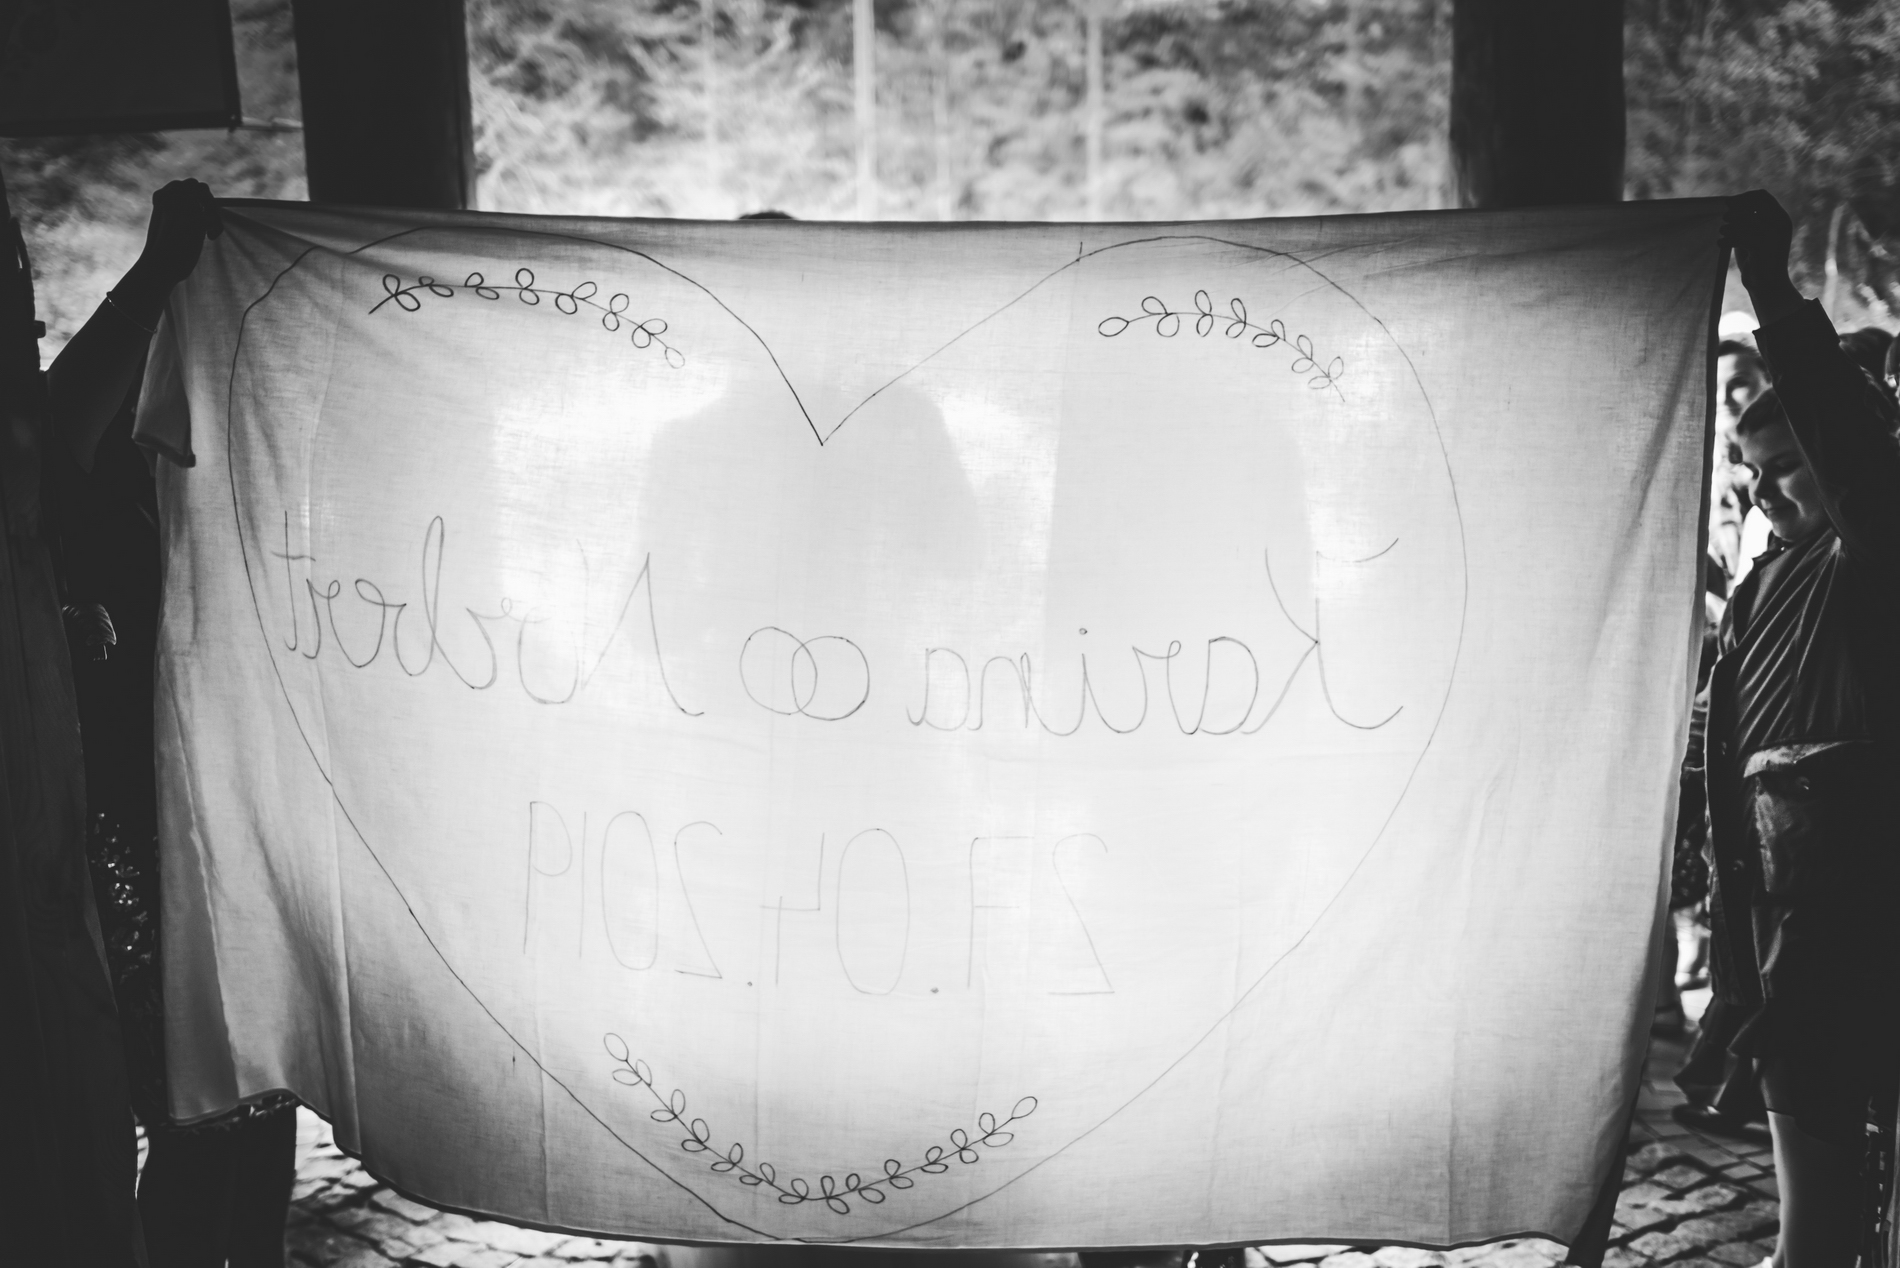 Karina Norbert
27.04.2019